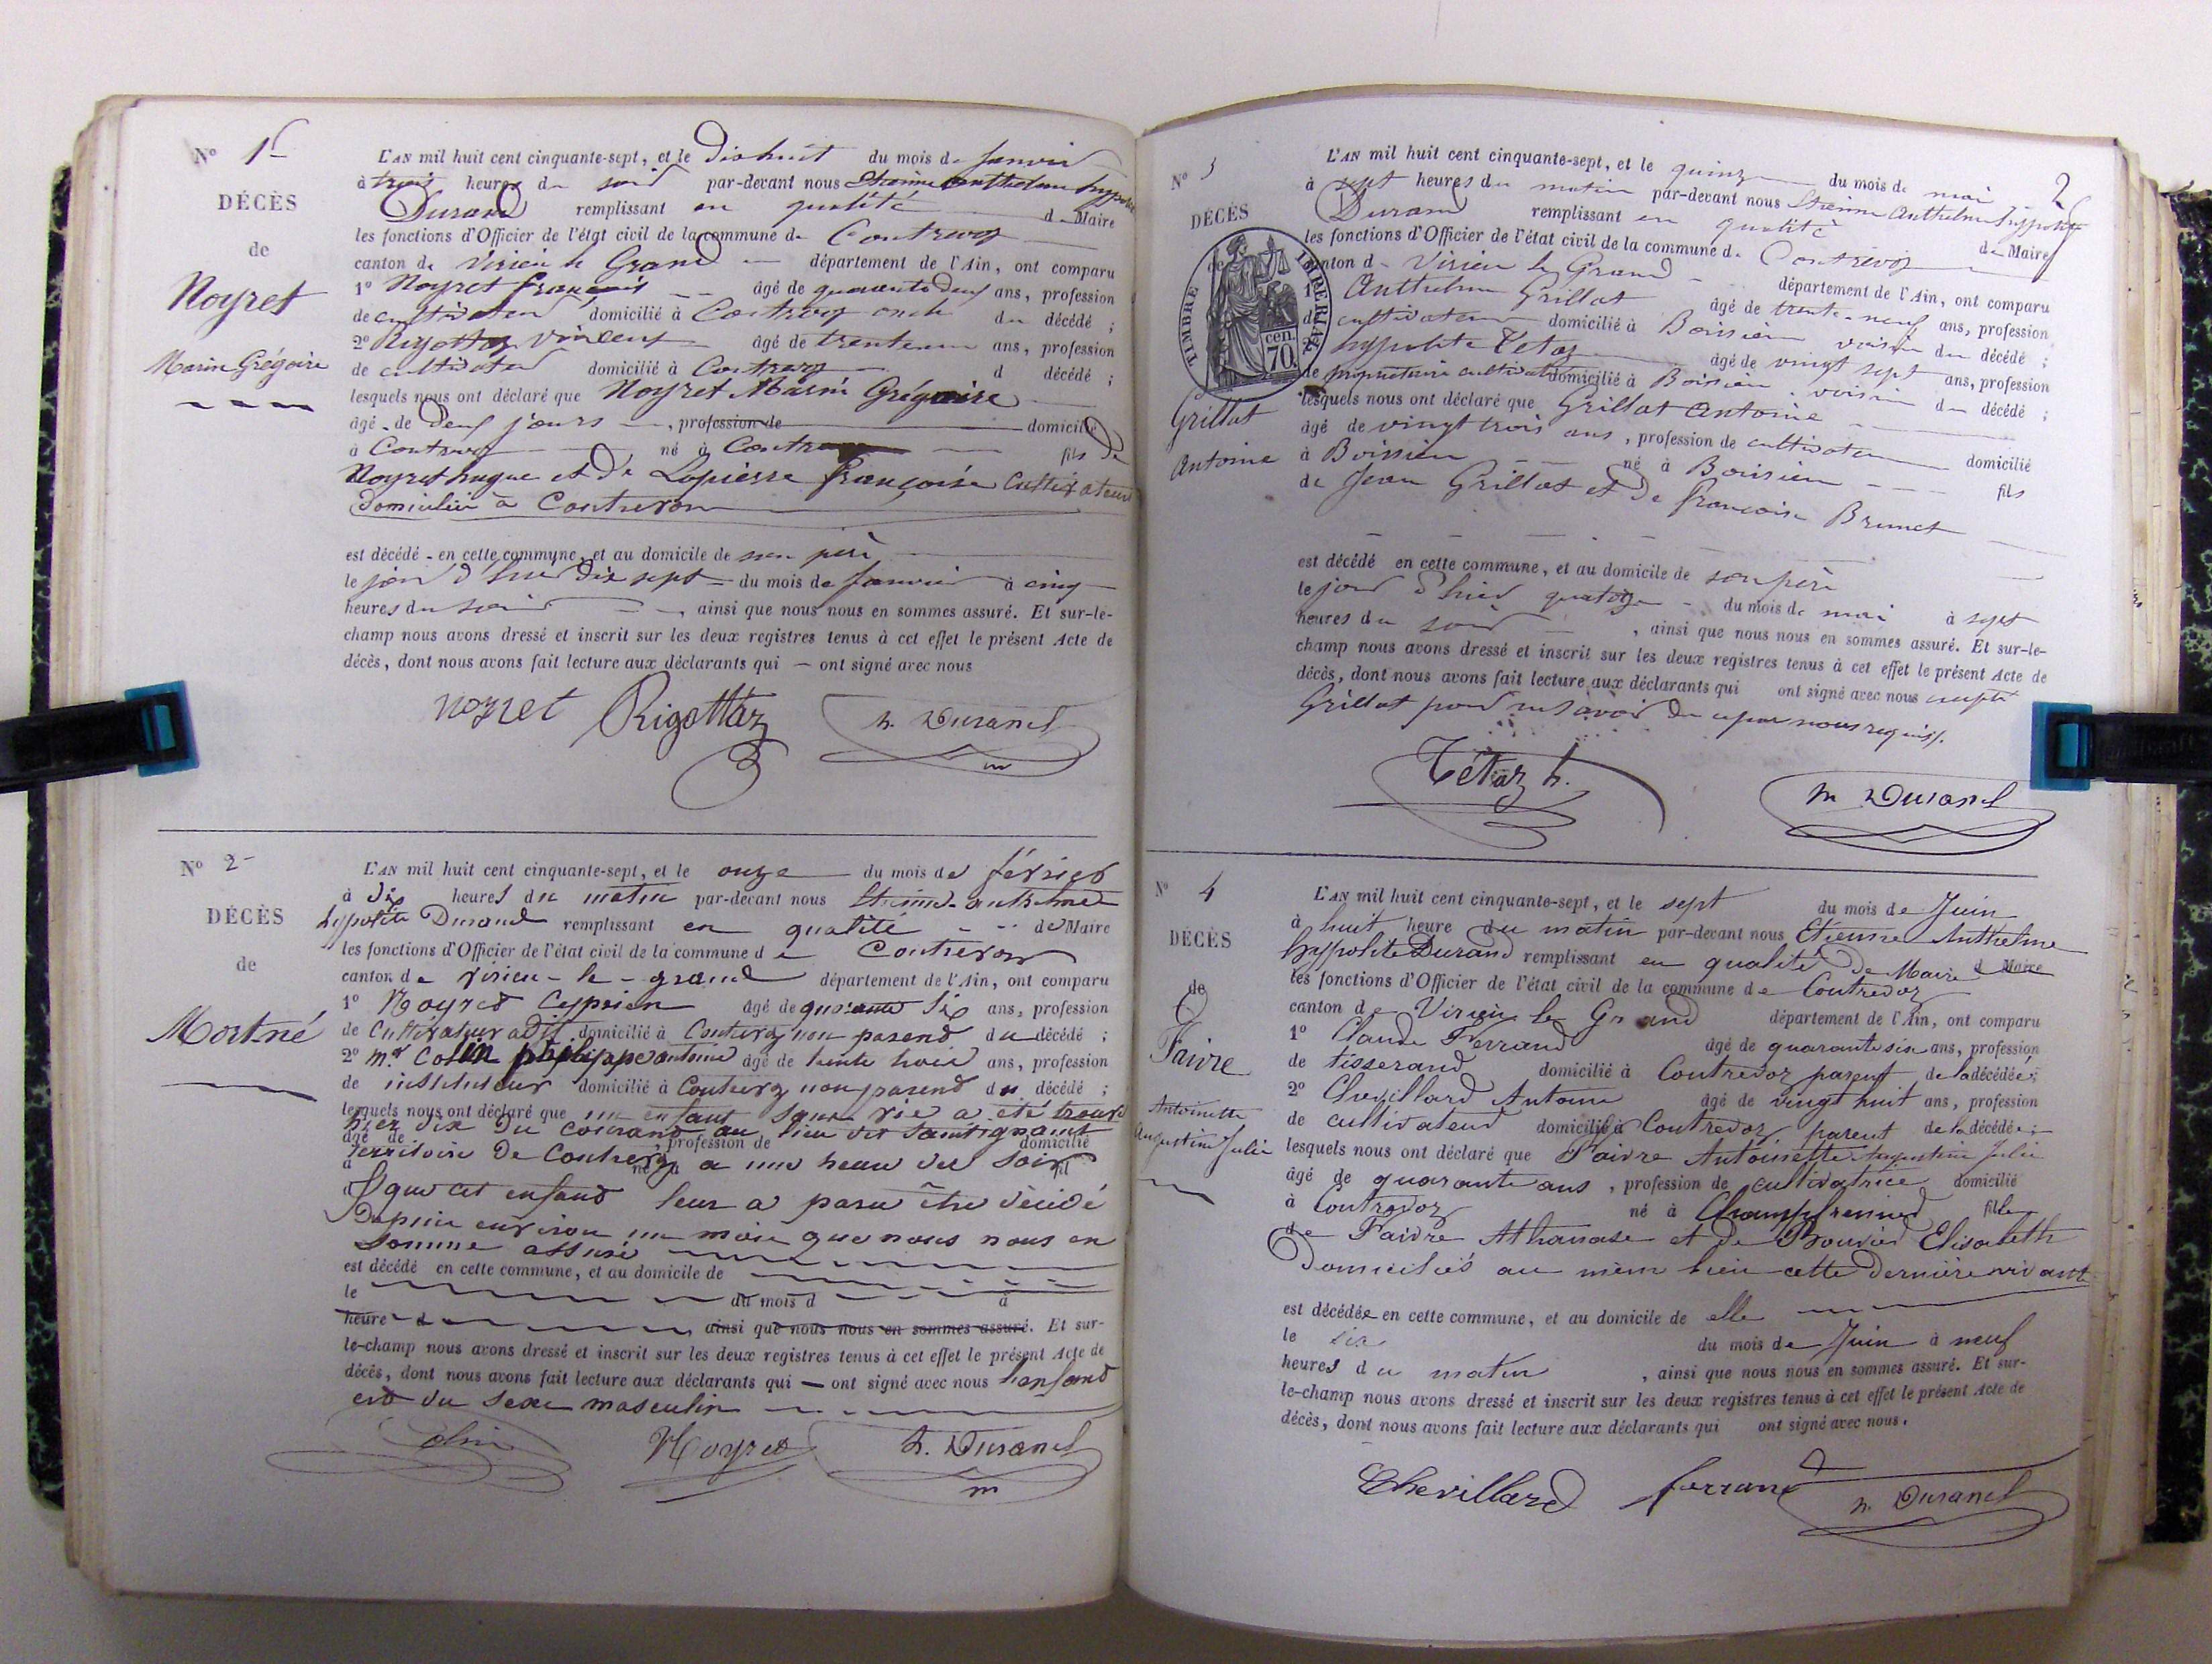 Nº 1
DÉCÈS
de
Noyret
Marin Grégoire
L'AN mil huit cent cinquante-sept, et le Dixhuit du mois de Janvier
à trois heures du soir par-devant nous Etienne Anthelme hyppolite
Durand remplissant en qualité de Maire
les fonctions d'Officier de l'état civil de la commune de Contrevoz
canton de Virieu le Grand département de l'Ain, ont comparu
1º Noyret françois âgé de quarante deux ans, profession
de cultivateur domicilié à Contrevoz oncle du décédé ;
2º Rigottaz Vincent âgé de trente un ans, profession
de cultivateur domicilié à Contrevoz d décédé ;
lesquels nous ont déclaré que Noyret Marin Grégoire
âgé de Deux jours , profession de domicilié
à Contrevoz né à Contrevoz fils de
Noyret hugue et de Lapierre françoise Cultivateurs
Domiciliés à Contrevoz
est décédé en cette commune, et au domicile de son père
le jour d'hier dix sept du mois de Janvier à cinq
heures du soir , ainsi que nous nous en sommes assuré. Et sur-le-
champ nous avons dressé et inscrit sur les deux registres tenus à cet effet le présent Acte de
décès, dont nous avons fait lecture aux déclarants qui — ont signé avec nous
noyret Rigottaz h. Durand
m
Nº 2
DÉCÈS
de
Mortné
L'AN mil huit cent cinquante-sept, et le onze du mois de février
à dix heures du matin par-devant nous Etienne anthelme
hyppolite Durand remplissant en qualité de Maire
les fonctions d'Officier de l'état civil de la commune de Contrevoz
canton de virieu-le-grand département de l'Ain, ont comparu
1º Noyret Cyprien âgé de quarante six ans, profession
de Cultivateur domicilié à Contrevoz non parend du décédé ;
2º mr. Colin philippe antoine âgé de trente trois ans, profession
de instituteur domicilié à Contrevoz non parend du décédé ;
lesquels nous ont déclaré que un enfant sans vie a été trouvé
hier dix du courand au lieu dit
âgé de profession de domicilié
territoire de Contrevoz a une heure du soir
à né à fil
& que cet enfand leur a paru être décédé
Depuis environ un mois que nous nous en
somme assuré
est décédé en cette commune, et au domicile de
le du mois d à
heure d ainsi que nous nous en sommes assuré. Et sur-
le-champ nous avons dressé et inscrit sur les deux registres tenus à cet effet le présent Acte de
décès, dont nous avons fait lecture aux déclarants qui — ont signé avec nous l'enfand
est du sexe masculin
Colin Noyret h. Durand
m
2
Nº 3
DÉCÈS
de
TIMBRE IMPERIAL
70 cen.
Grillat
Antoine
L'AN mil huit cent cinquante-sept, et le quinze du mois de mai
à sept heures du matin par-devant nous Etienne Anthelme hyppolite
Durand remplissant en qualité de Maire
les fonctions d'Officier de l'état civil de la commune de Contrevoz
canton d Virieu le Grand département de l'Ain, ont comparu
1º Anthelme Grillat âgé de trente-neuf ans, profession
de cultivateur domicilié à Boissieu voisin du décédé ;
2º hyppolite Tétaz âgé de vingt sept ans, profession
de propriétaire cultivateur domicilié à Boissieu voisin du décédé ;
lesquels nous ont déclaré que Grillat Antoine
âgé de vingt trois ans , profession de cultivateur domicilié
à Boissieu né à Boissieu fils
de Jean Grillat et de françoise Brunet
est décédé en cette commune, et au domicile de son père
le jour d'hier quatorze du mois de mai à sept
heures du soir , ainsi que nous nous en sommes assuré. Et sur-le-
champ nous avons dressé et inscrit sur les deux registres tenus à cet effet le présent Acte de
décès, dont nous avons fait lecture aux déclarants qui ont signé avec nous excepté
Grillat pour ne savoir de ce par nous requis.
Tétaz h. h. Durand
Nº 4
DÉCÈS
de
Faivre
Antoinette
Augustine Julie
L'AN mil huit cent cinquante-sept, et le sept du mois de Juin
à huit heure du matin par-devant nous Etienne Anthelme
hyppolite Durand remplissant en qualité de Maire d Maire
les fonctions d'Officier de l'état civil de la commune de Contrevoz
canton de Virieu le Grand département de l'Ain, ont comparu
1º Claude Ferrand âgé de quarante six ans, profession
de tisserand domicilié à Contrevoz parent de la décédée;
2º Chevillard Antoine âgé de vingt huit ans, profession
de cultivateur domicilié à Contrevoz parent de la décédée;
lesquels nous ont déclaré que Faivre Antoinette Augustine Julie
âgé de quarante ans , profession de cultivatrice domicilié
à Contrevoz né à fille
de Faivre Athanase et de Bouvier Elisabeth
Domiciliés au même lieu cette dernière vivante
est décédée en cette commune, et au domicile de elle
le six du mois de Juin à neuf
heures du matin , ainsi que nous nous en sommes assuré. Et sur-
le-champ nous avons dressé et inscrit sur les deux registres tenus à cet effet le présent Acte de
décès, dont nous avons fait lecture aux déclarants qui ont signé avec nous.
Chevillard ferrand h. Durand